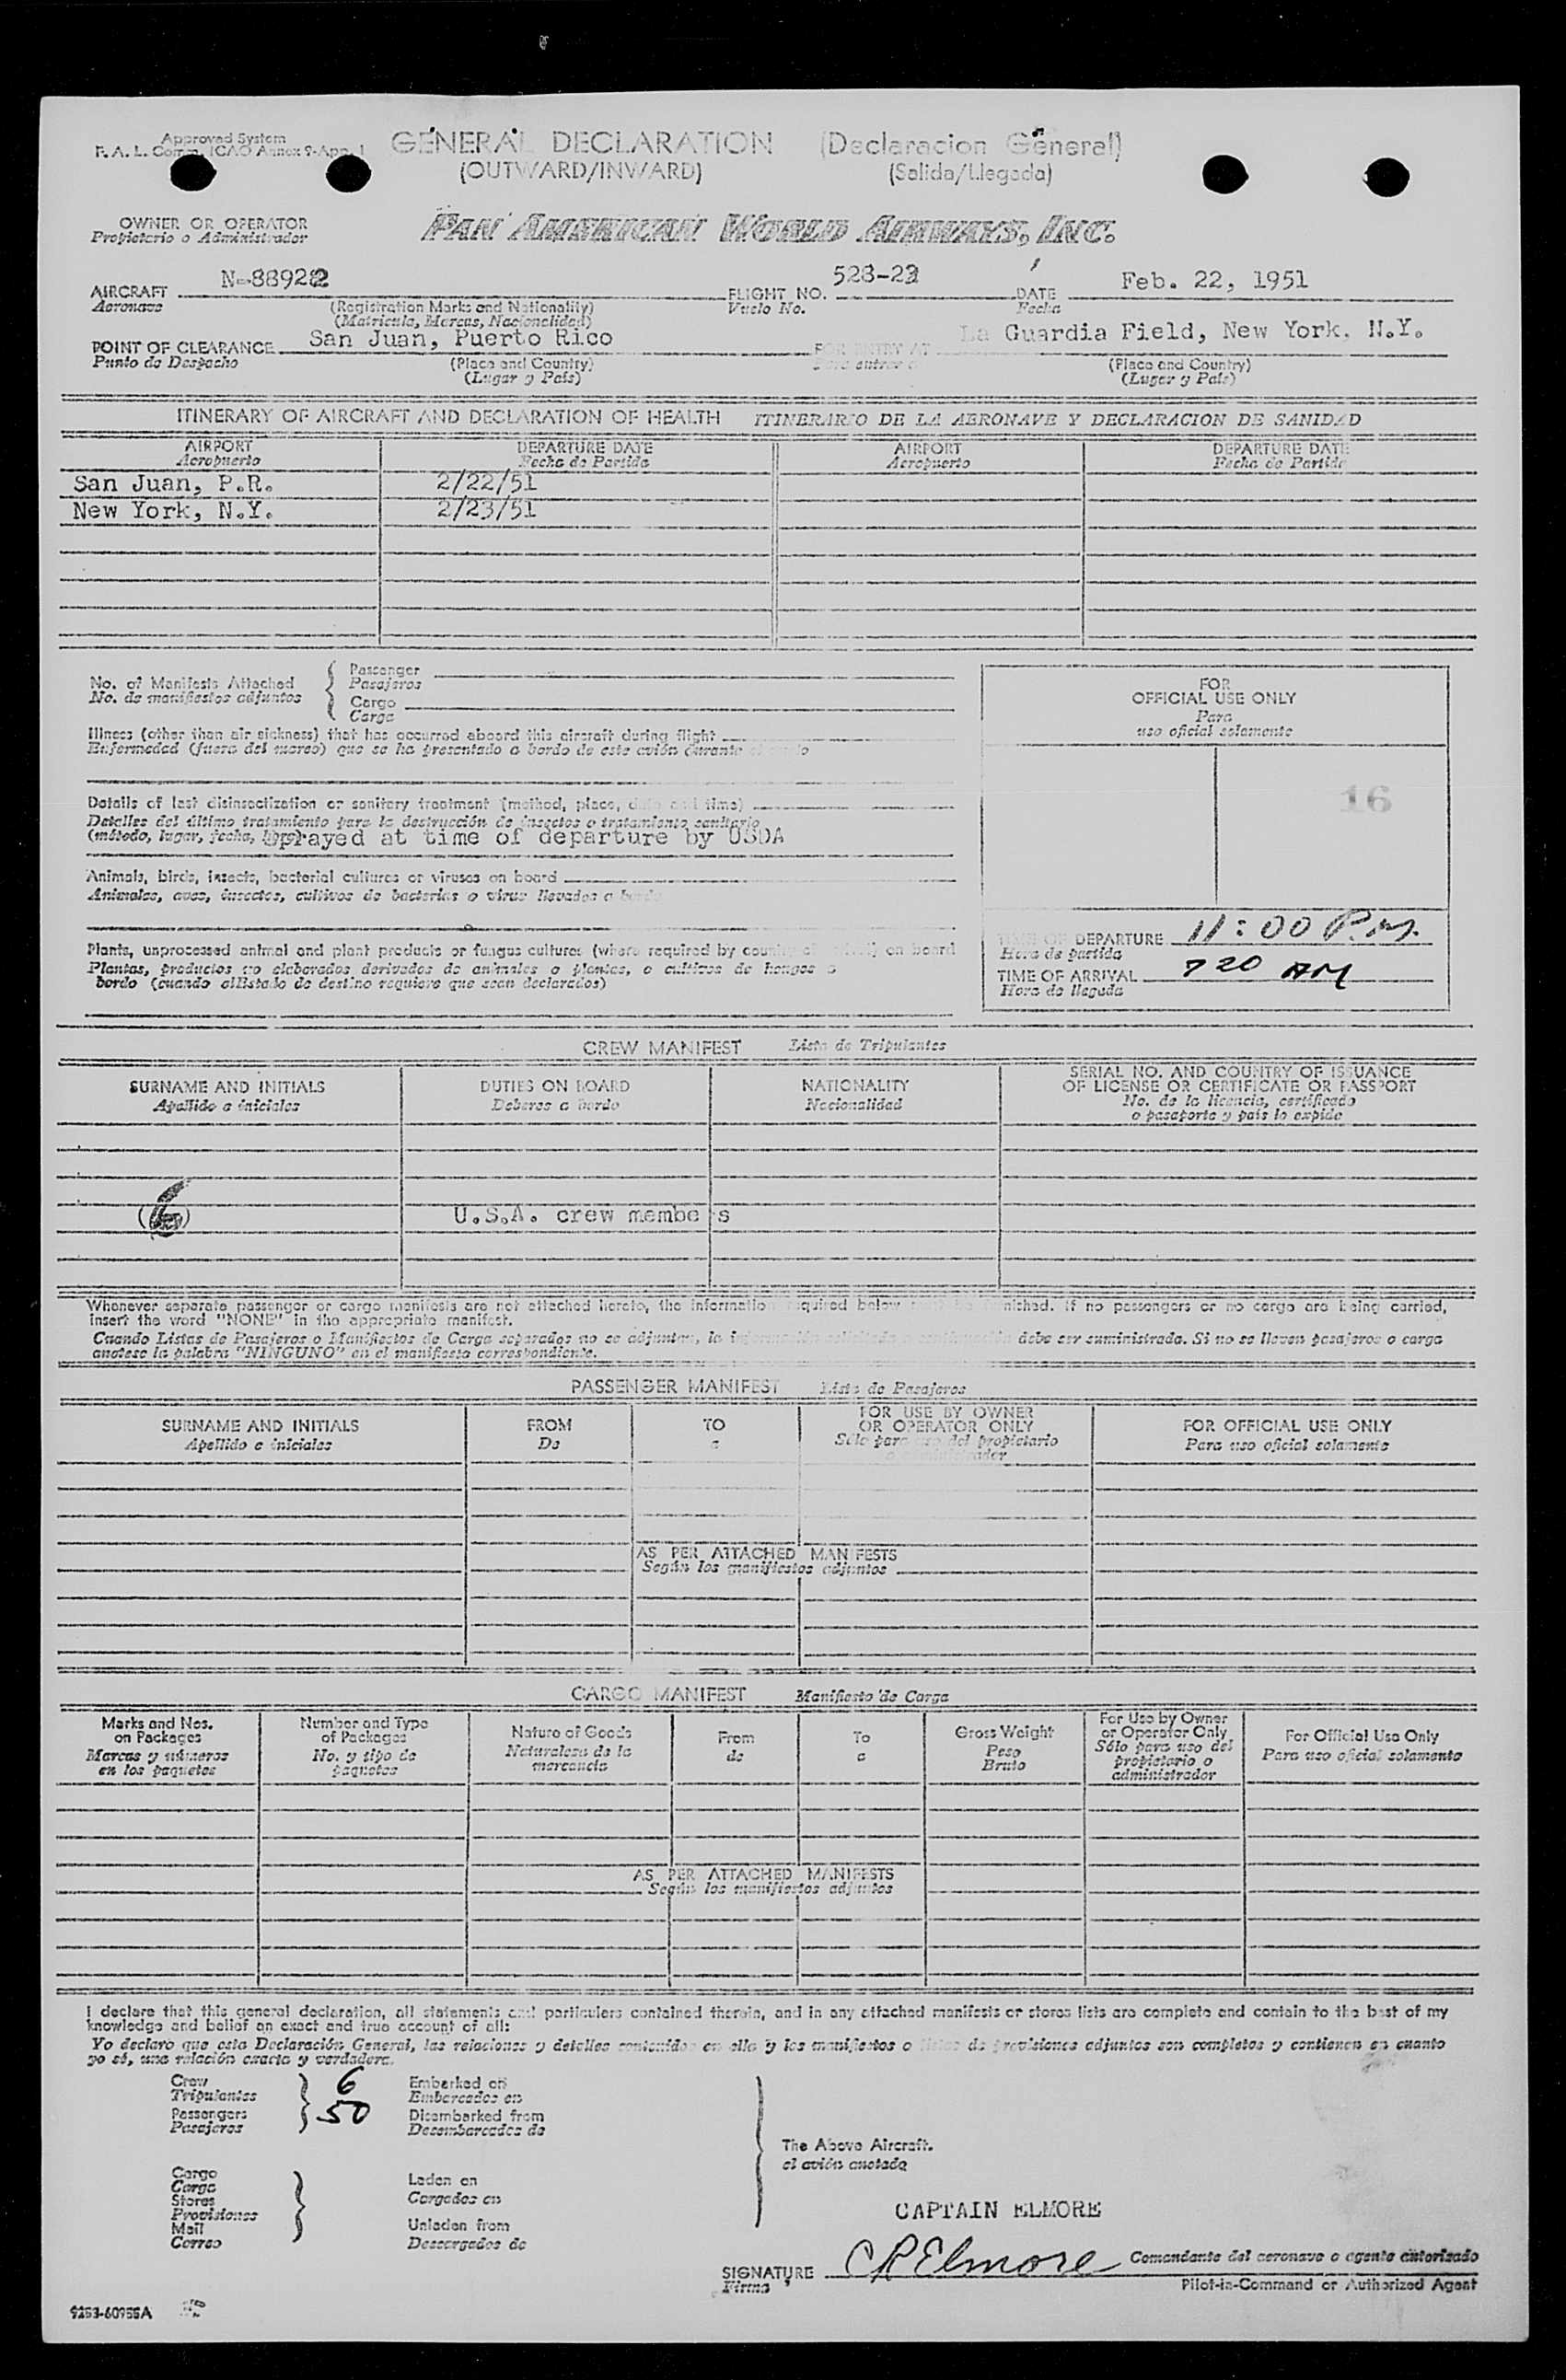 Approved System
F. A. L. Comm. ICAO Annex 9-App. 1
GENERAL DECLARATION (Declaracion General)
(OUTWARD/INWARD) (Salida/Llegada)
OWNER OR OPERATOR
Propietario o Administrador
PAN AMERICAN WORLD AIRWAYS, INC.
AIRCRAFT N-88922 FLIGHT NO. 528-22 DATE Feb. 22, 1951
Aeronave (Registration Marks and Nationality) Vuelo No. Fecha
(Matricula, Marcas, Nacionalidad)
POINT OF CLEARANCE San Juan, Puerto Rico FOR ENTRY AT La Guardia Field, New York, N.Y.
Punto de Despacho (Place and Country) Para entrar a (Place and Country)
(Lugar y País) (Lugar y País)
ITINERARY OF AIRCRAFT AND DECLARATION OF HEALTH ITINERARIO DE LA AERONAVE Y DECLARACION DE SANIDAD
AIRPORT DEPARTURE DATE AIRPORT DEPARTURE DATE
Aeropuerto Fecha de Partida Aeropuerto Fecha de Partida
San Juan, P.R. 2/22/51
New York, N.Y. 2/23/51
No. of Manifests Attached
No. de manifiestos adjuntos
Passenger
Pasajeros
Cargo
Carga
FOR
OFFICIAL USE ONLY
Para
uso oficial solamente
16
Illness (other than air sickness) that has occurred aboard this aircraft during flight
Enfermedad (fuera del mareo) que se ha presentado a bordo de este avión durante el vuelo
Details of last disinsectization or sanitary treatment (method, place, date and time)
Detalles del último tratamiento para la destrucción de insectos o tratamiento sanitario
(método, lugar, fecha, hora) Sprayed at time of departure by USDA
Animals, birds, insects, bacterial cultures or viruses on board
Animales, aves, insectos, cultivos de bacterias o virus llevados a bordo
Plants, unprocessed animal and plant products or fungus cultures (where required by country of) on board
Plantas, productos no elaborados derivados de animales o plantas, o cultivos de hongos a
bordo (cuando elEstado de destino requiere que sean declarados)
TIME OF DEPARTURE 11:00 P.M.
Hora de partida
TIME OF ARRIVAL 720 AM
Hora de llegada
CREW MANIFEST Lista de Tripulantes
SURNAME AND INITIALS DUTIES ON BOARD NATIONALITY SERIAL NO. AND COUNTRY OF ISSUANCE
OF LICENSE OR CERTIFICATE OR PASSPORT
Apellido e iniciales Deberes a bordo Nacionalidad No. de la licencia, certificado
o pasaporte y país lo expide
(6) U.S.A. crew members
Whenever separate passenger or cargo manifests are not attached hereto, the information required below must be furnished. If no passengers or no cargo are being carried,
insert the word "NONE" in the appropriate manifest.
Cuando Listas de Pasajeros o Manifiestos de Carga separados no se adjuntan, la debe ser suministrada. Si no se llevan pasajeros o carga
anotese la palabra "NINGUNO" en el manifiesto correspondiente.
PASSENGER MANIFEST Lista de Pasajeros
SURNAME AND INITIALS FROM TO FOR USE BY OWNER
OR OPERATOR ONLY FOR OFFICIAL USE ONLY
Apellido e iniciales De a Sólo para uso del propietario
o administrador Para uso oficial solamente
AS PER ATTACHED MANIFESTS
Según los manifiestos adjuntos
CARGO MANIFEST Manifiesto de Carga
Marks and Nos.
on Packages
Marcas y números
en los paquetes
Number and Type
of Packages
No. y tipo de
paquetes
Nature of Goods
Naturalesa de la
mercancia
From
de
To
a
Gross Weight
Peso
Bruto
For Use by Owner
or Operator Only
Sólo para uso del
propietario o
administrador
For Official Use Only
Para uso oficial solamente
AS PER ATTACHED MANIFESTS
Según los manifiestos adjuntos
I declare that this general declaration, all statements and particulars contained therein, and in any attached manifests or stores lists are complete and contain to the best of my
knowledge and belief an exact and true account of all:
Yo declaro que esta Declaración General, las relaciones y detalles contenidos en ella y los manifiestos o listas de provisiones adjuntos son completos y contienen en cuanto
yo sé, una relación exacta y verdadera.
Crew 6 Embarked on
Tripulantes Embarcados en
Passengers 50 Disembarked from
Pasajeros Desembarcados de
The Above Aircraft.
el avión anotado
Cargo
Carga
Stores
Provisiones
Mail
Correo
Laden on
Cargados en
Unladen from
Descargados de
CAPTAIN ELMORE
SIGNATURE CRElmore Comandante del aeronave o agente autorizado
Firma Pilot-in-Command or Authorized Agent
9253-60955A